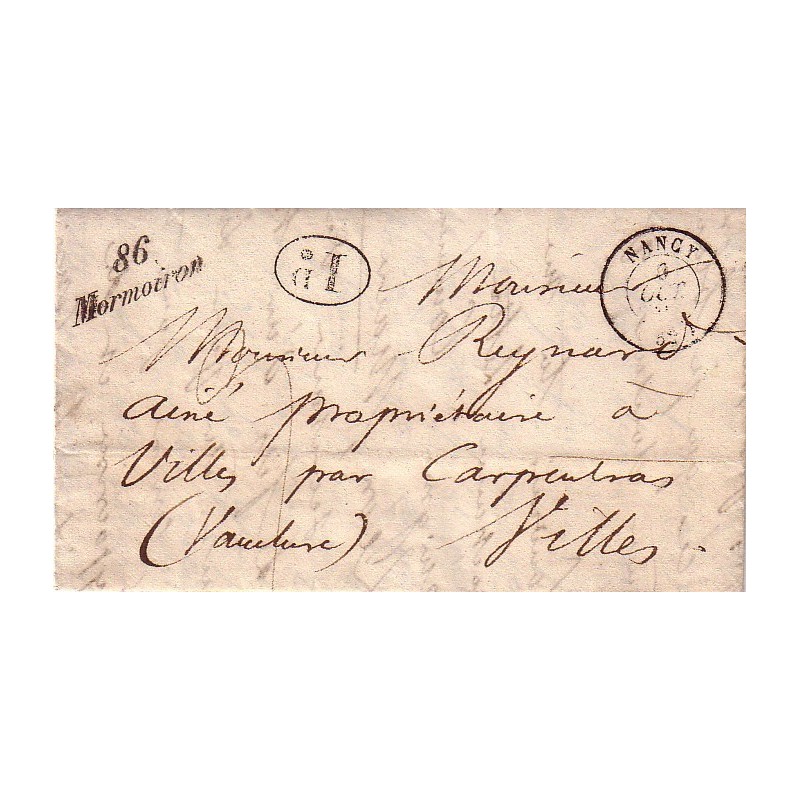 86
Mormoiron
NANCY
OCT
Monsieur
Monsieur Reynard
ainé propriétaire à
Villes par Carpentras
(Vaucluse) Villes.